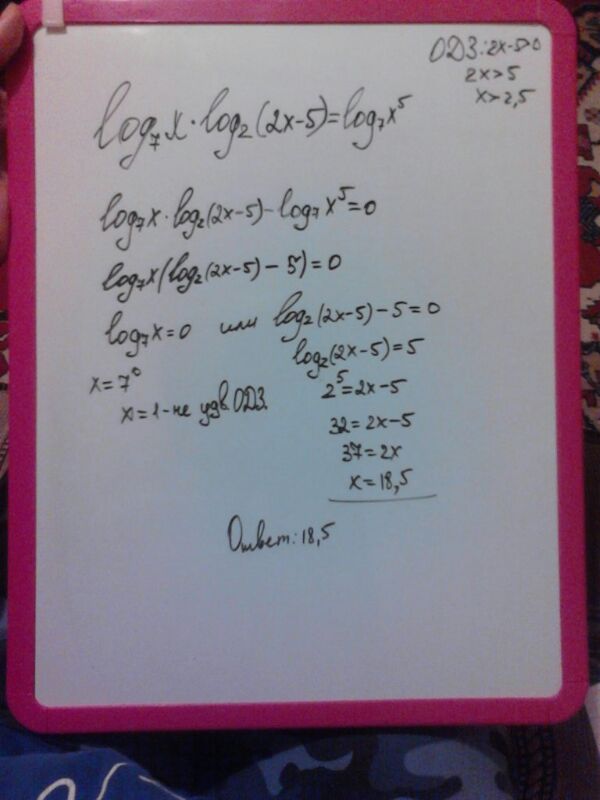 ОДЗ: 2x-5>0
2x>5
x>2,5
log₇x·log₂(2x-5)=log₇x⁵
log₇x·log₂(2x-5)-log₇x⁵=0
log₇x(log₂(2x-5)-5)=0
log₇x=0 или log₂(2x-5)-5=0
log₂(2x-5)=5
x=7⁰
2⁵=2x-5
x=1-не удв. ОДЗ.
32=2x-5
37=2x
x=18,5
Ответ: 18,5